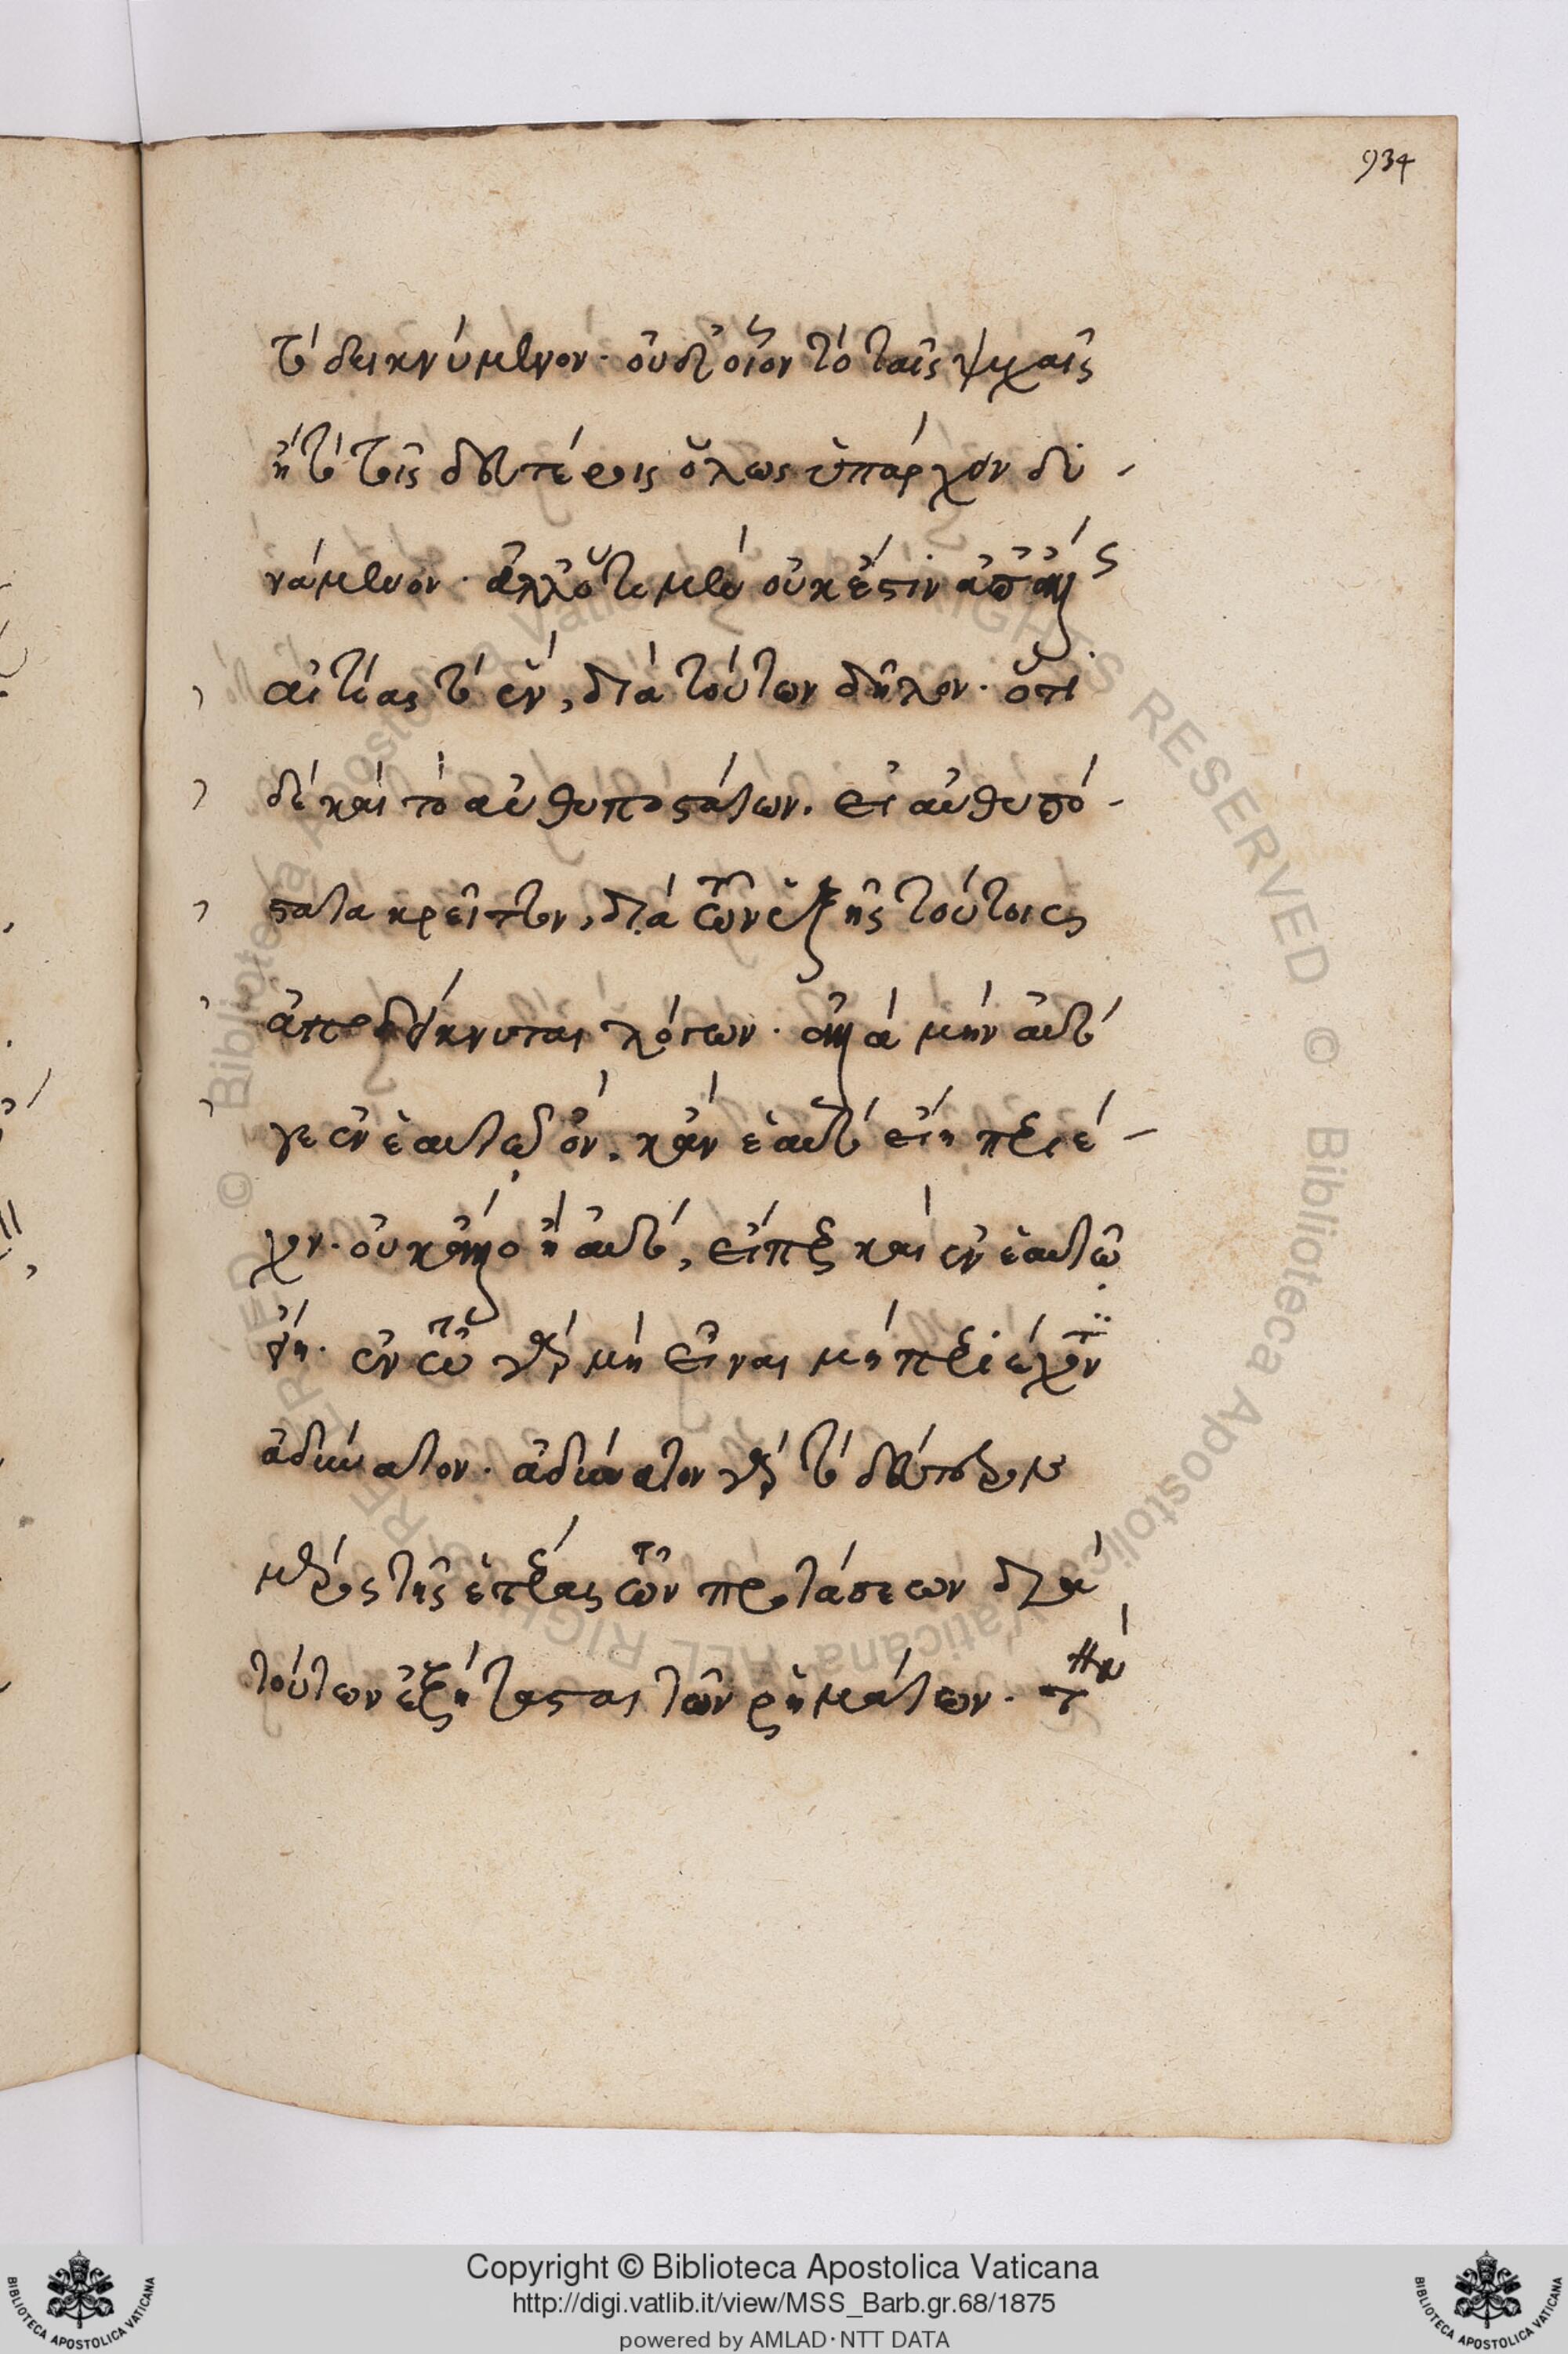 934
τὸ δεικνύμενον· οὐδ' οἷον τὸ ταῖς ψυχαῖς
ἢ τὸ τοῖς δευτέροις ὅλως ὑπάρχον δυ-
νάμενον· ἀλλ' ὅτι μὲν οὐκ ἔστιν ἀπ' ἄλλης
αἰτίας τὸ ἓν, διὰ τούτων δῆλον· ὅτι
δὲ καὶ τὸ αὐθυποστάτων. εἰ αὐθυπό-
στατα κρεῖττον, διὰ τῶν ἑξῆς τούτοις
ἀποδείκνυται λόγων· ἀλλὰ μὴν αὐτό
γε ἐν ἑαυτῷ ὄν. κἂν ἑαυτὸ εἴη περιέ-
χον· οὐκ ἄλλο ἢ αὐτό, εἴπερ καὶ ἐν ἑαυτῷ
εἴη· ἔν τῳ γὰρ μὴ εἶναι μὴ περιέχοντι
ἀδύνατον· ἀδύνατον γὰρ τὸ δεύτερον
μέρος τῆς ἑτέρας τῶν προτάσεων διὰ
τούτων ἐξήτασται τῶν ῥημάτων·
Copyright © Biblioteca Apostolica Vaticana
http://digi.vatlib.it/view/MSS_Barb.gr.68/1875
powered by AMLAD·NTT DATA
BIBLIOTECA APOSTOLICA VATICANA
BIBLIOTECA APOSTOLICA VATICANA
© Biblioteca Apostolica Vaticana ALL RIGHTS RESERVED © Biblioteca Apostolica Vaticana ALL RIGHTS RESERVED